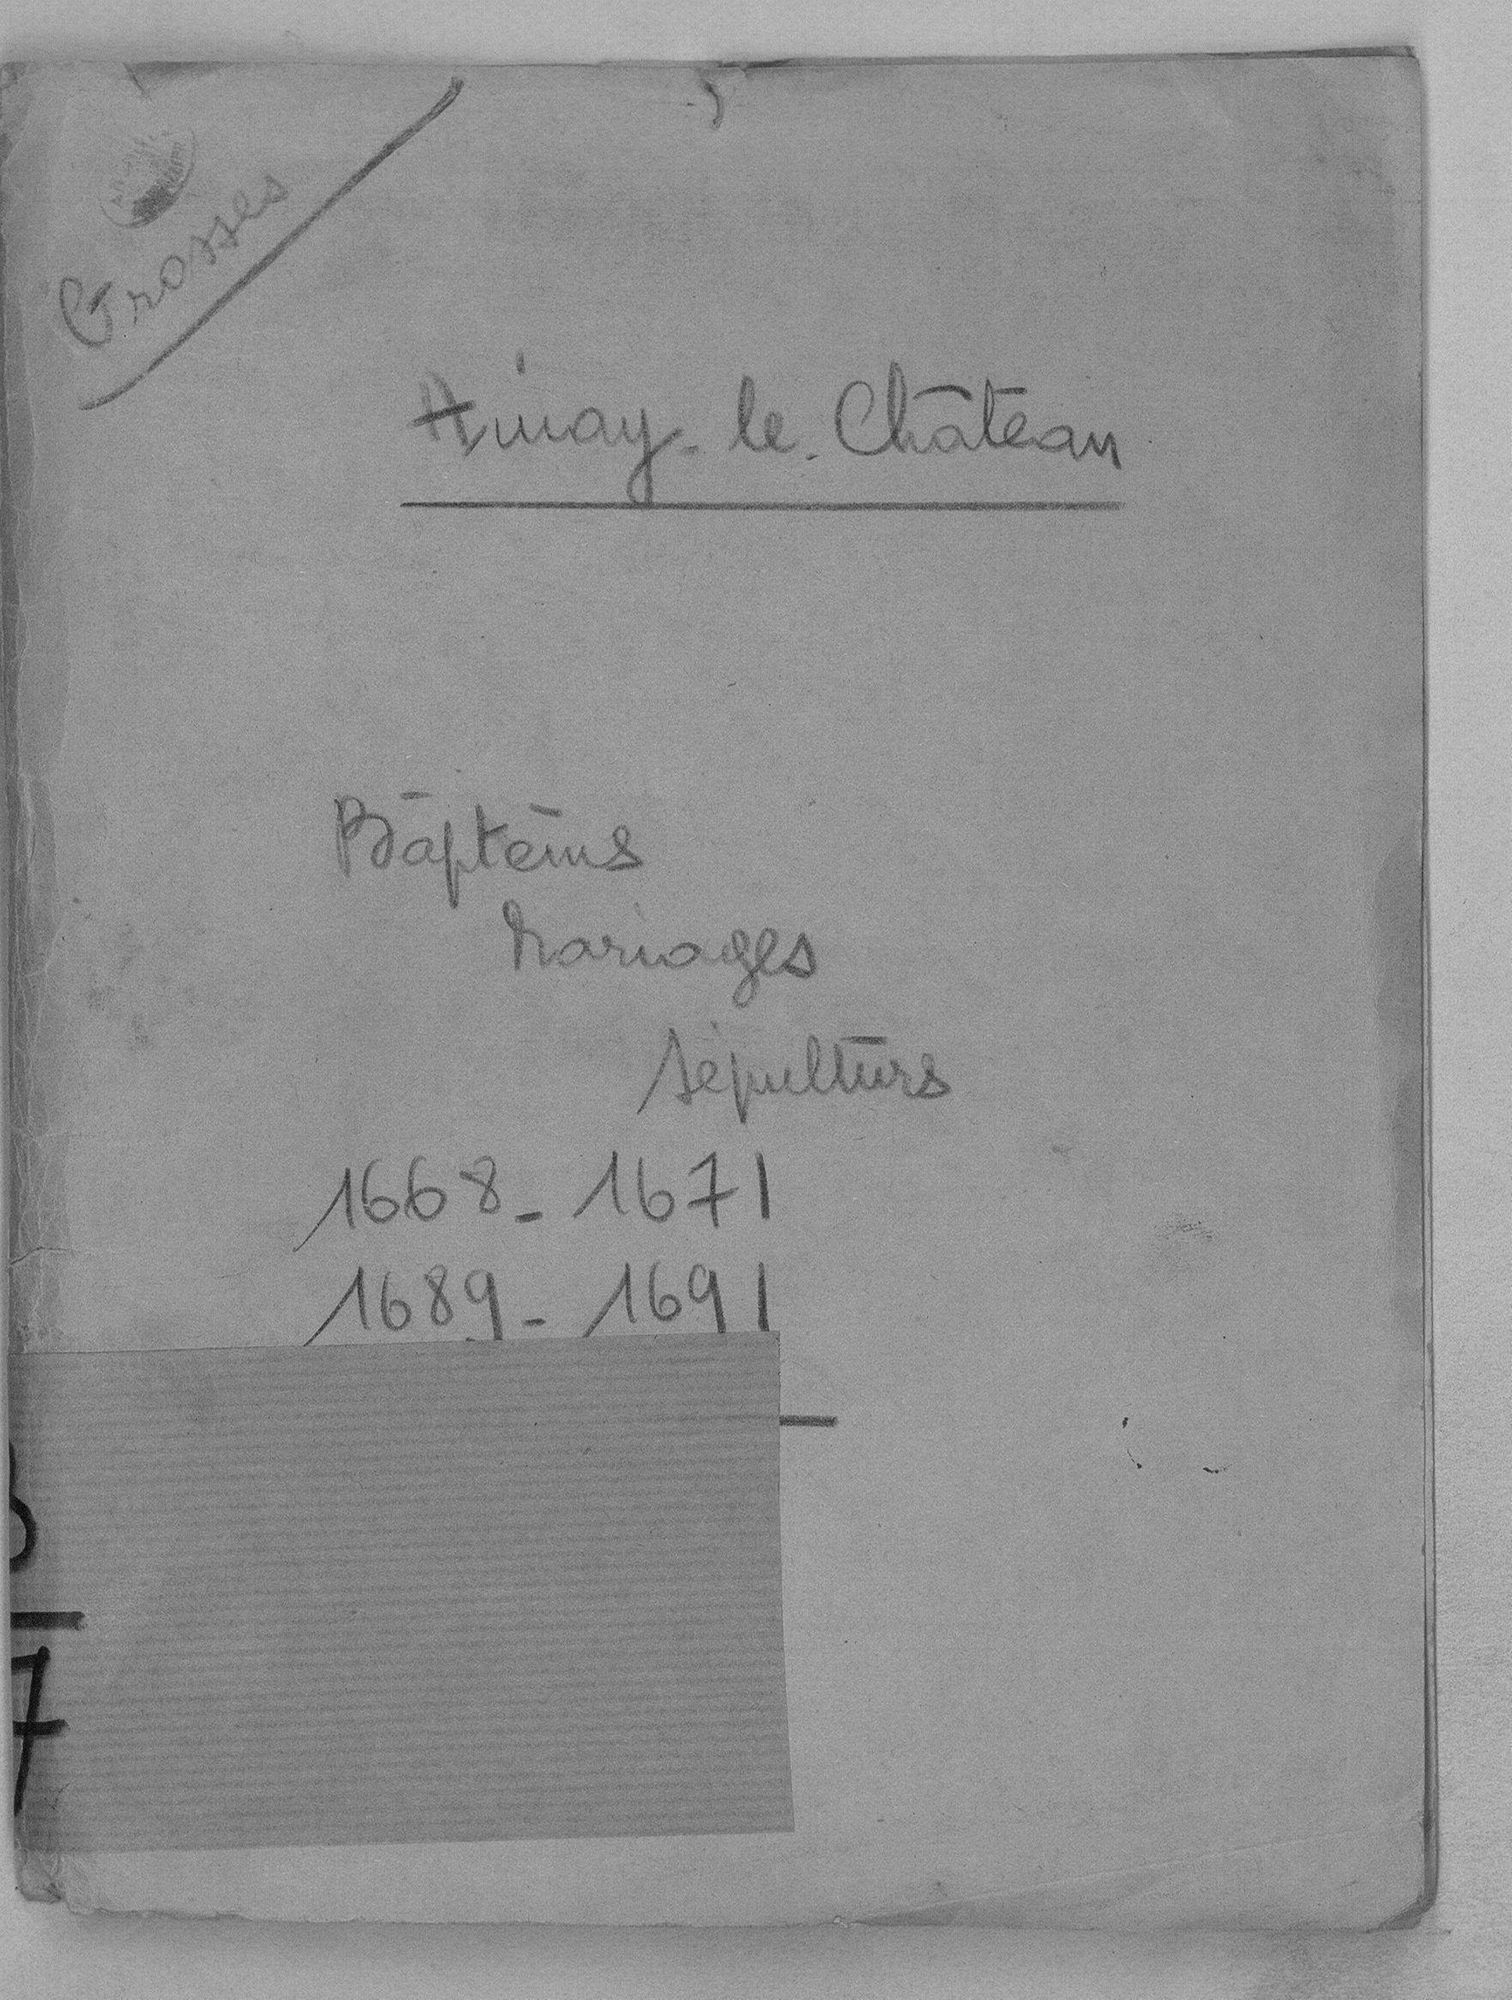 Grosses
Ainay-le-Château
Baptêms
Mariages
Sépulturs
1668 - 1671
1689 - 1691
7